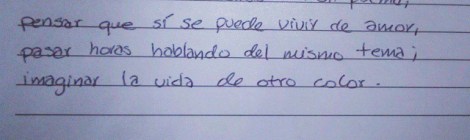 pensar que sí se puede vivir de amor,
pasar horas hablando del mismo tema;
imaginar la vida de otro color.